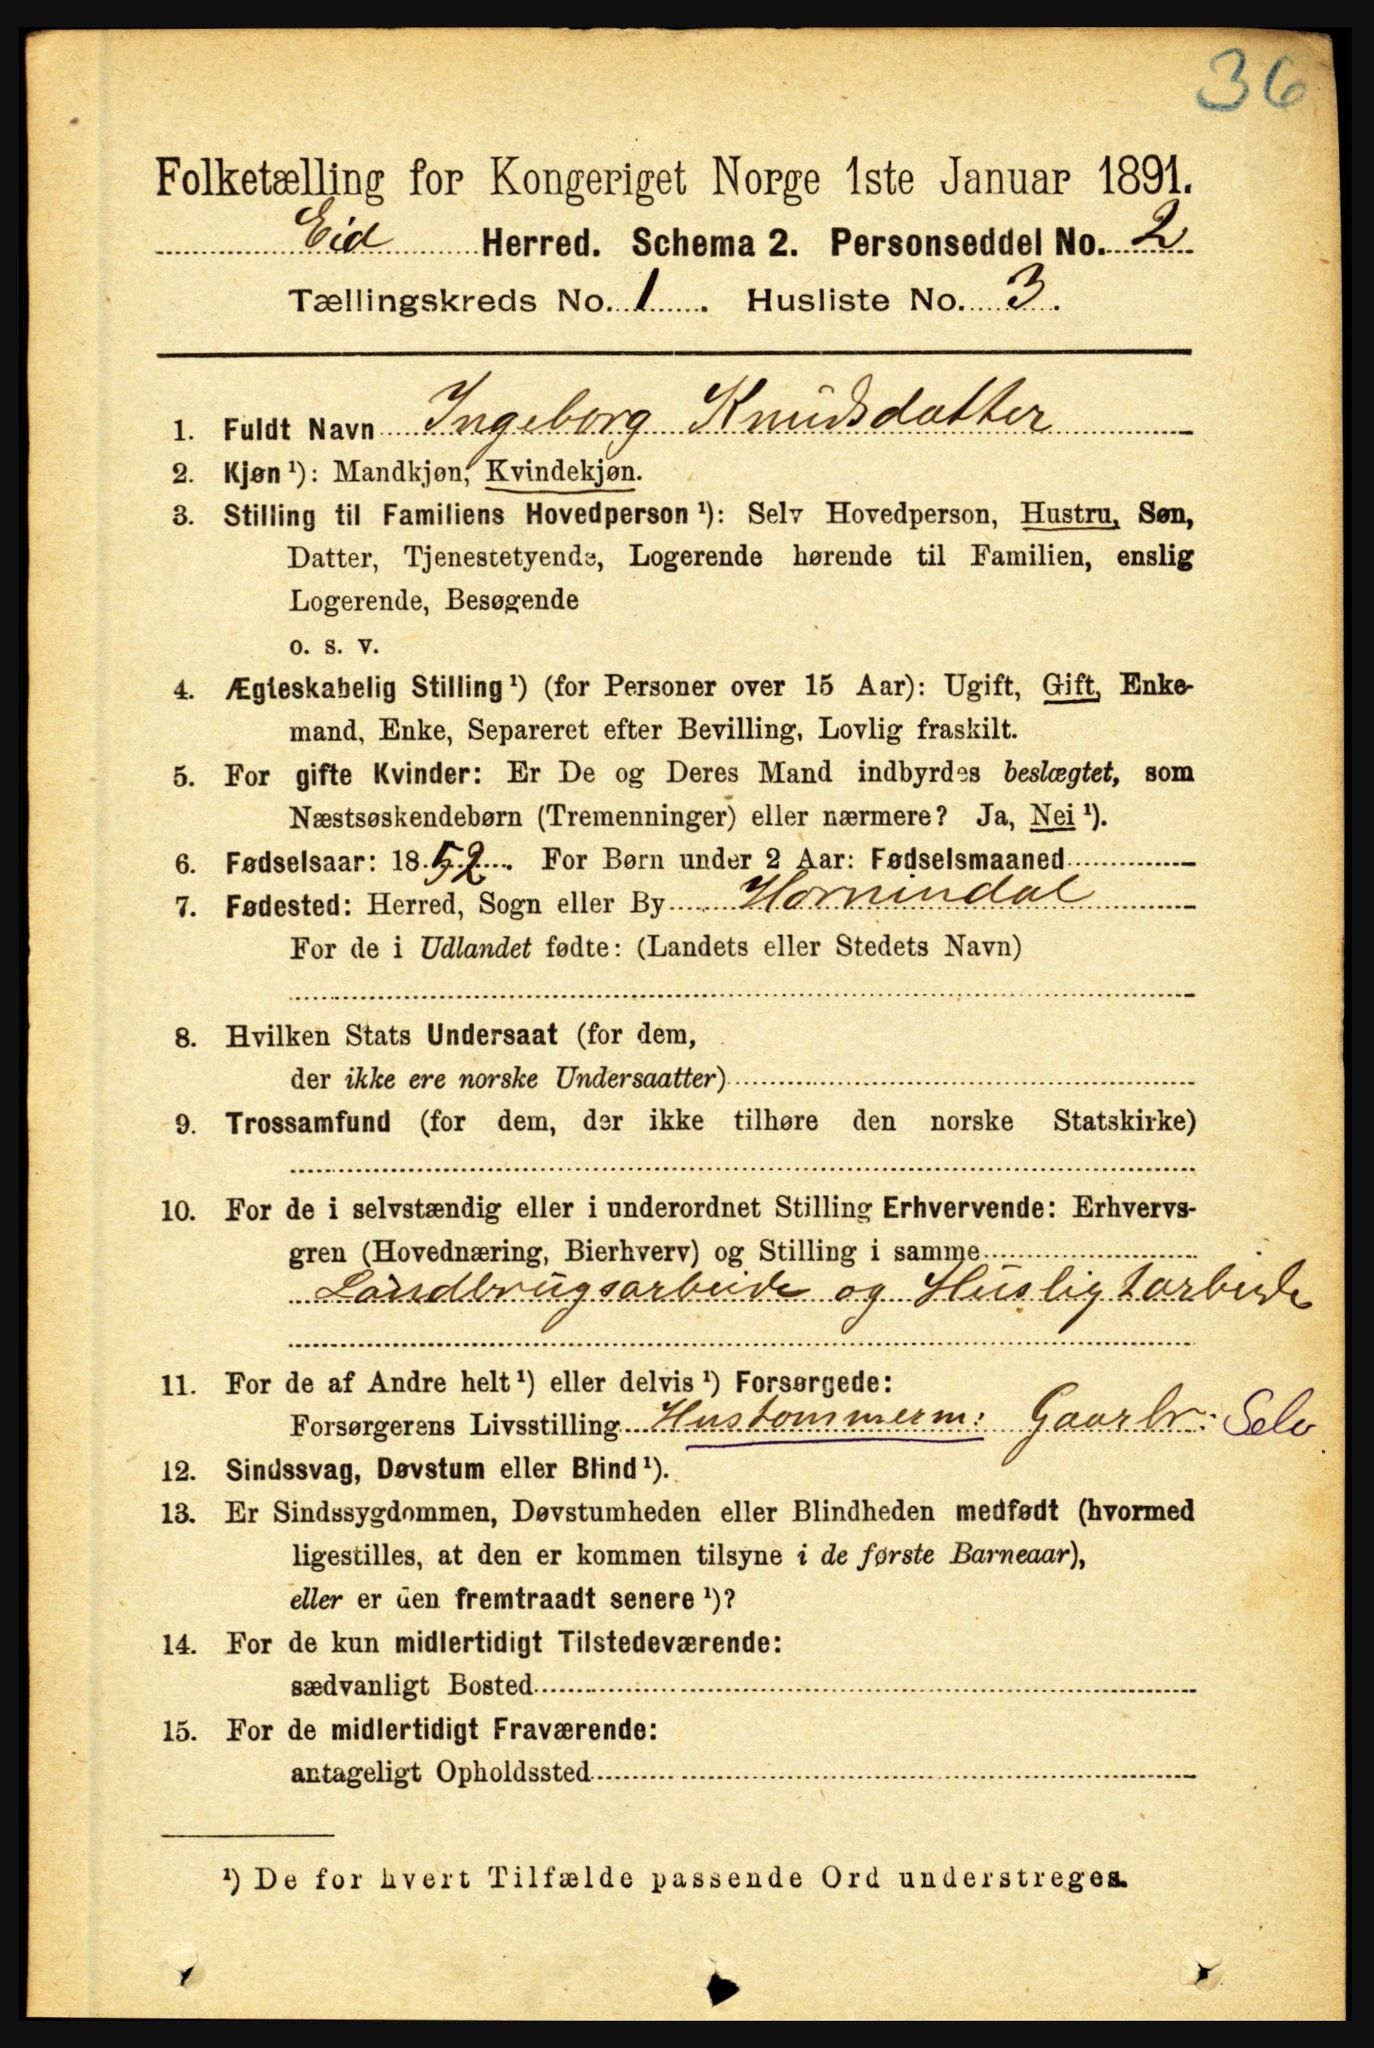 36
Folketælling for Kongeriget Norge 1ste Januar 1891.
Eid Herred. Schema 2. Personseddel No. 2
Tællingskreds No. 1. Husliste No. 3.
1. Fuldt Navn Ingeborg Knudsdatter
2. Kjøn ¹): Mandkjøn, Kvindekjøn.
3. Stilling til Familiens Hovedperson ¹): Selv Hovedperson, Hustru, Søn,
Datter, Tjenestetyende, Logerende hørende til Familien, enslig
Logerende, Besøgende
o. s. v.
4. Ægteskabelig Stilling ¹) (for Personer over 15 Aar): Ugift, Gift, Enke-
mand, Enke, Separeret efter Bevilling, Lovlig fraskilt.
5. For gifte Kvinder: Er De og Deres Mand indbyrdes beslægtet, som
Næstsøskendebørn (Tremenninger) eller nærmere? Ja, Nei ¹).
6. Fødselsaar: 1852. For Børn under 2 Aar: Fødselsmaaned
7. Fødested: Herred, Sogn eller By Hornindal
For de i Udlandet fødte: (Landets eller Stedets Navn)
8. Hvilken Stats Undersaat (for dem,
der ikke ere norske Undersaatter)
9. Trossamfund (for dem, der ikke tilhøre den norske Statskirke)
10. For de i selvstændig eller i underordnet Stilling Erhvervende: Erhvervs-
gren (Hovednæring, Bierhverv) og Stilling i samme
Landbrugsarbeide og Husligtarbeide
11. For de af Andre helt ¹) eller delvis ¹) Forsørgede:
Forsørgerens Livsstilling Hustømmerm: Gaarbr: Selv
12. Sindssvag, Døvstum eller Blind ¹).
13. Er Sindssygdommen, Døvstumheden eller Blindheden medfødt (hvormed
ligestilles, at den er kommen tilsyne i de første Barneaar),
eller er den fremtraadt senere ¹)?
14. For de kun midlertidigt Tilstedeværende:
sædvanligt Bosted
15. For de midlertidigt Fraværende:
antageligt Opholdssted
¹) De for hvert Tilfælde passende Ord understreges.